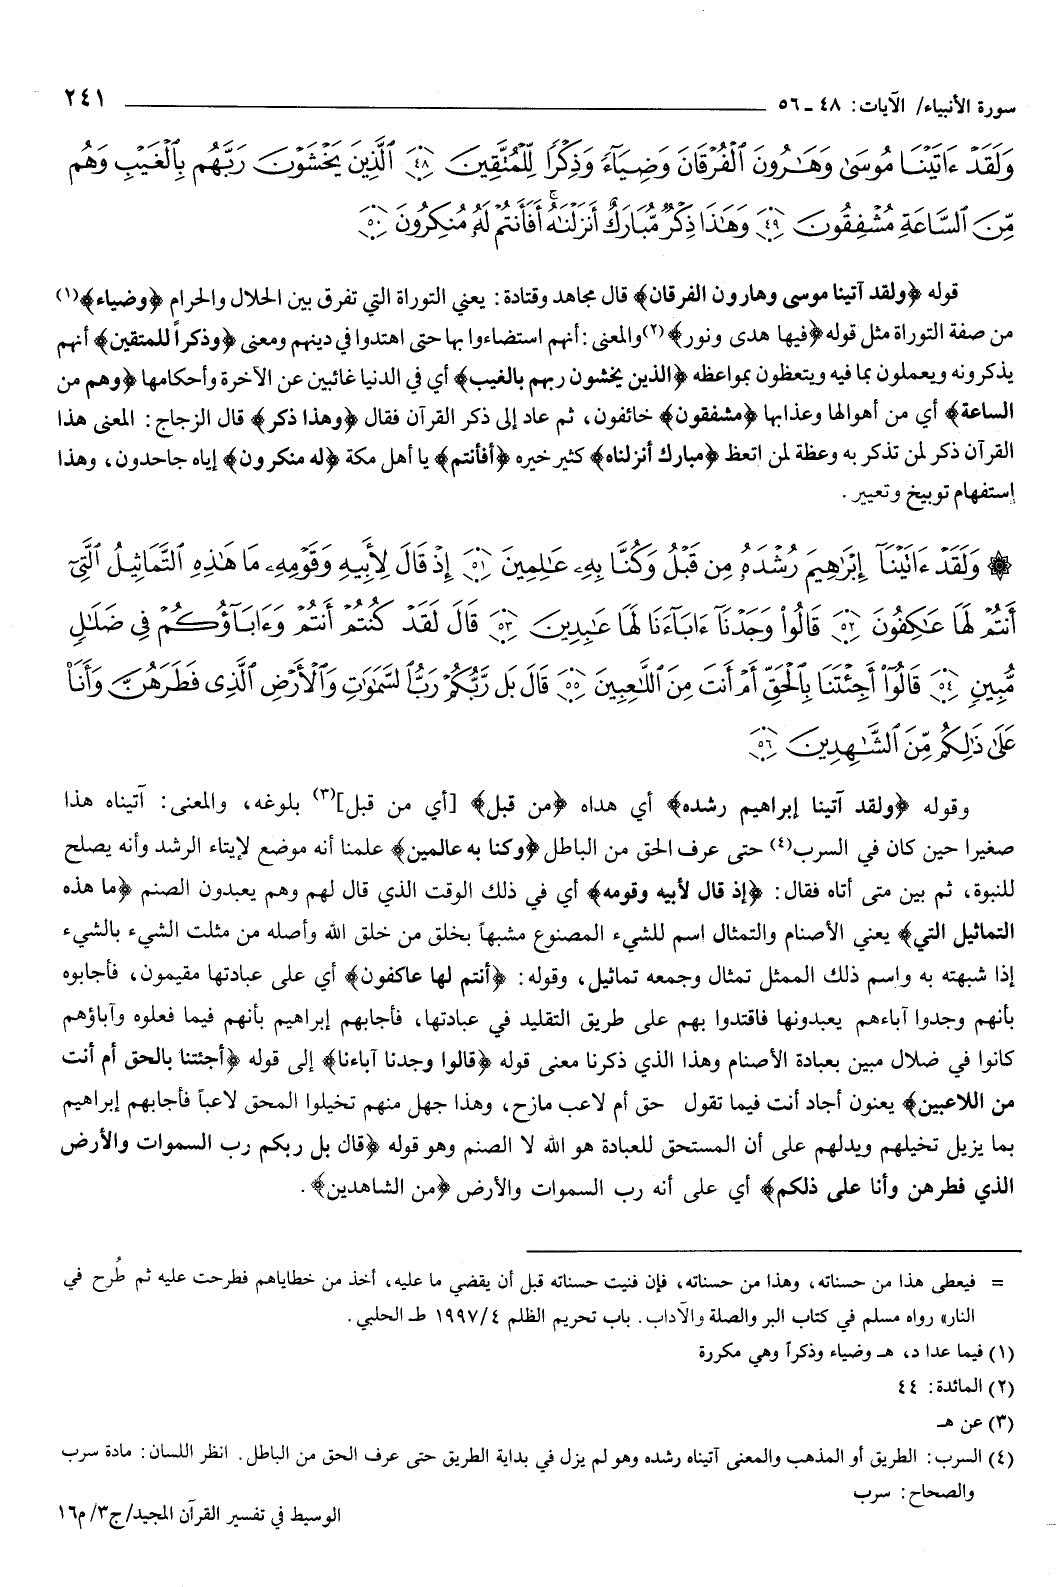 سورة الأنبياء/ الآيات: ٤٨ ـ ٥٦ ٢٤١
وَلَقَدْ ءَاتَيْنَا مُوسَىٰ وَهَـٰرُونَ ٱلْفُرْقَانَ وَضِيَآءً وَذِكْرًا لِّلْمُتَّقِينَ ﴿٤٨﴾ ٱلَّذِينَ يَخْشَوْنَ رَبَّهُم بِٱلْغَيْبِ وَهُم
مِّنَ ٱلسَّاعَةِ مُشْفِقُونَ ﴿٤٩﴾ وَهَـٰذَا ذِكْرٌ مُّبَارَكٌ أَنزَلْنَـٰهُ ۚ أَفَأَنتُمْ لَهُۥ مُنكِرُونَ ﴿٥٠﴾
قوله ﴿ولقد آتينا موسى وهارون الفرقان﴾ قال مجاهد وقتادة: يعني التوراة التي تفرق بين الحلال والحرام ﴿وضياء﴾(١)
من صفة التوراة مثل قوله ﴿فيها هدى ونور﴾(٢) والمعنى: أنهم استضاءوا بها حتى اهتدوا في دينهم ومعنى ﴿وذكراً للمتقين﴾ أنهم
يذكرونه ويعملون بما فيه ويتعظون بمواعظه ﴿الذين يخشون ربهم بالغيب﴾ أي في الدنيا غائبين عن الآخرة وأحكامها ﴿وهم من
الساعة﴾ أي من أهوالها وعذابها ﴿مشفقون﴾ خائفون، ثم عاد إلى ذكر القرآن فقال ﴿وهذا ذكر﴾ قال الزجاج: المعنى هذا
القرآن ذكر لمن تذكر به وعظة لمن اتعظ ﴿مبارك أنزلناه﴾ كثير خيره ﴿أفأنتم﴾ يا أهل مكة ﴿له منكرون﴾ إياه جاحدون، وهذا
إستفهام توبيخ وتعيير.
۞ وَلَقَدْ ءَاتَيْنَآ إِبْرَٰهِيمَ رُشْدَهُۥ مِن قَبْلُ وَكُنَّا بِهِۦ عَـٰلِمِينَ ﴿٥١﴾ إِذْ قَالَ لِأَبِيهِ وَقَوْمِهِۦ مَا هَـٰذِهِ ٱلتَّمَاثِيلُ ٱلَّتِىٓ
أَنتُمْ لَهَا عَـٰكِفُونَ ﴿٥٢﴾ قَالُوا۟ وَجَدْنَآ ءَابَآءَنَا لَهَا عَـٰبِدِينَ ﴿٥٣﴾ قَالَ لَقَدْ كُنتُمْ أَنتُمْ وَءَابَآؤُكُمْ فِى ضَلَـٰلٍ
مُّبِينٍ ﴿٥٤﴾ قَالُوٓا۟ أَجِئْتَنَا بِٱلْحَقِّ أَمْ أَنتَ مِنَ ٱللَّـٰعِبِينَ ﴿٥٥﴾ قَالَ بَل رَّبُّكُمْ رَبُّ ٱلسَّمَـٰوَٰتِ وَٱلْأَرْضِ ٱلَّذِى فَطَرَهُنَّ وَأَنَا۠
عَلَىٰ ذَٰلِكُم مِّنَ ٱلشَّـٰهِدِينَ ﴿٥٦﴾
وقوله ﴿ولقد آتينا إبراهيم رشده﴾ أي هداه ﴿من قبل﴾ [أي من قبل](٣) بلوغه، والمعنى: آتيناه هذا
صغيرا حين كان في السرب(٤) حتى عرف الحق من الباطل ﴿وكنا به عالمين﴾ علمنا أنه موضع لإيتاء الرشد وأنه يصلح
للنبوة، ثم بين متى أتاه فقال: ﴿إذ قال لأبيه وقومه﴾ أي في ذلك الوقت الذي قال لهم وهم يعبدون الصنم ﴿ما هذه
التماثيل التي﴾ يعني الأصنام والتمثال اسم للشيء المصنوع مشبهاً بخلق من خلق الله وأصله من مثلت الشيء بالشيء
إذا شبهته به واسم ذلك الممثل تمثال وجمعه تماثيل، وقوله: ﴿أنتم لها عاكفون﴾ أي على عبادتها مقيمون، فأجابوه
بأنهم وجدوا آباءهم يعبدونها فاقتدوا بهم على طريق التقليد في عبادتها، فأجابهم إبراهيم بأنهم فيما فعلوه وآباؤهم
كانوا في ضلال مبين بعبادة الأصنام وهذا الذي ذكرنا معنى قوله ﴿قالوا وجدنا آباءنا﴾ إلى قوله ﴿أجئتنا بالحق أم أنت
من اللاعبين﴾ يعنون أجاد أنت فيما تقول حق أم لاعب مازح، وهذا جهل منهم تخيلوا المحق لاعباً فأجابهم إبراهيم
بما يزيل تخيلهم ويدلهم على أن المستحق للعبادة هو الله لا الصنم وهو قوله ﴿قال بل ربكم رب السموات والأرض
الذي فطرهن وأنا على ذلكم﴾ أي على أنه رب السموات والأرض ﴿من الشاهدين﴾.
= فيعطى هذا من حسناته، وهذا من حسناته، فإن فنيت حسناته قبل أن يقضي ما عليه، أخذ من خطاياهم فطرحت عليه ثم طُرح في
النار» رواه مسلم في كتاب البر والصلة والآداب. باب تحريم الظلم ١٩٩٧/٤ طـ الحلبي.
(١) فيما عدا د، هـ وضياء وذكراً وهي مكررة
(٢) المائدة: ٤٤
(٣) عن هـ
(٤) السرب: الطريق أو المذهب والمعنى آتيناه رشده وهو لم يزل في بداية الطريق حتى عرف الحق من الباطل. انظر اللسان: مادة سرب
والصحاح: سرب
الوسيط في تفسير القرآن المجيد/ ج٣/ م١٦